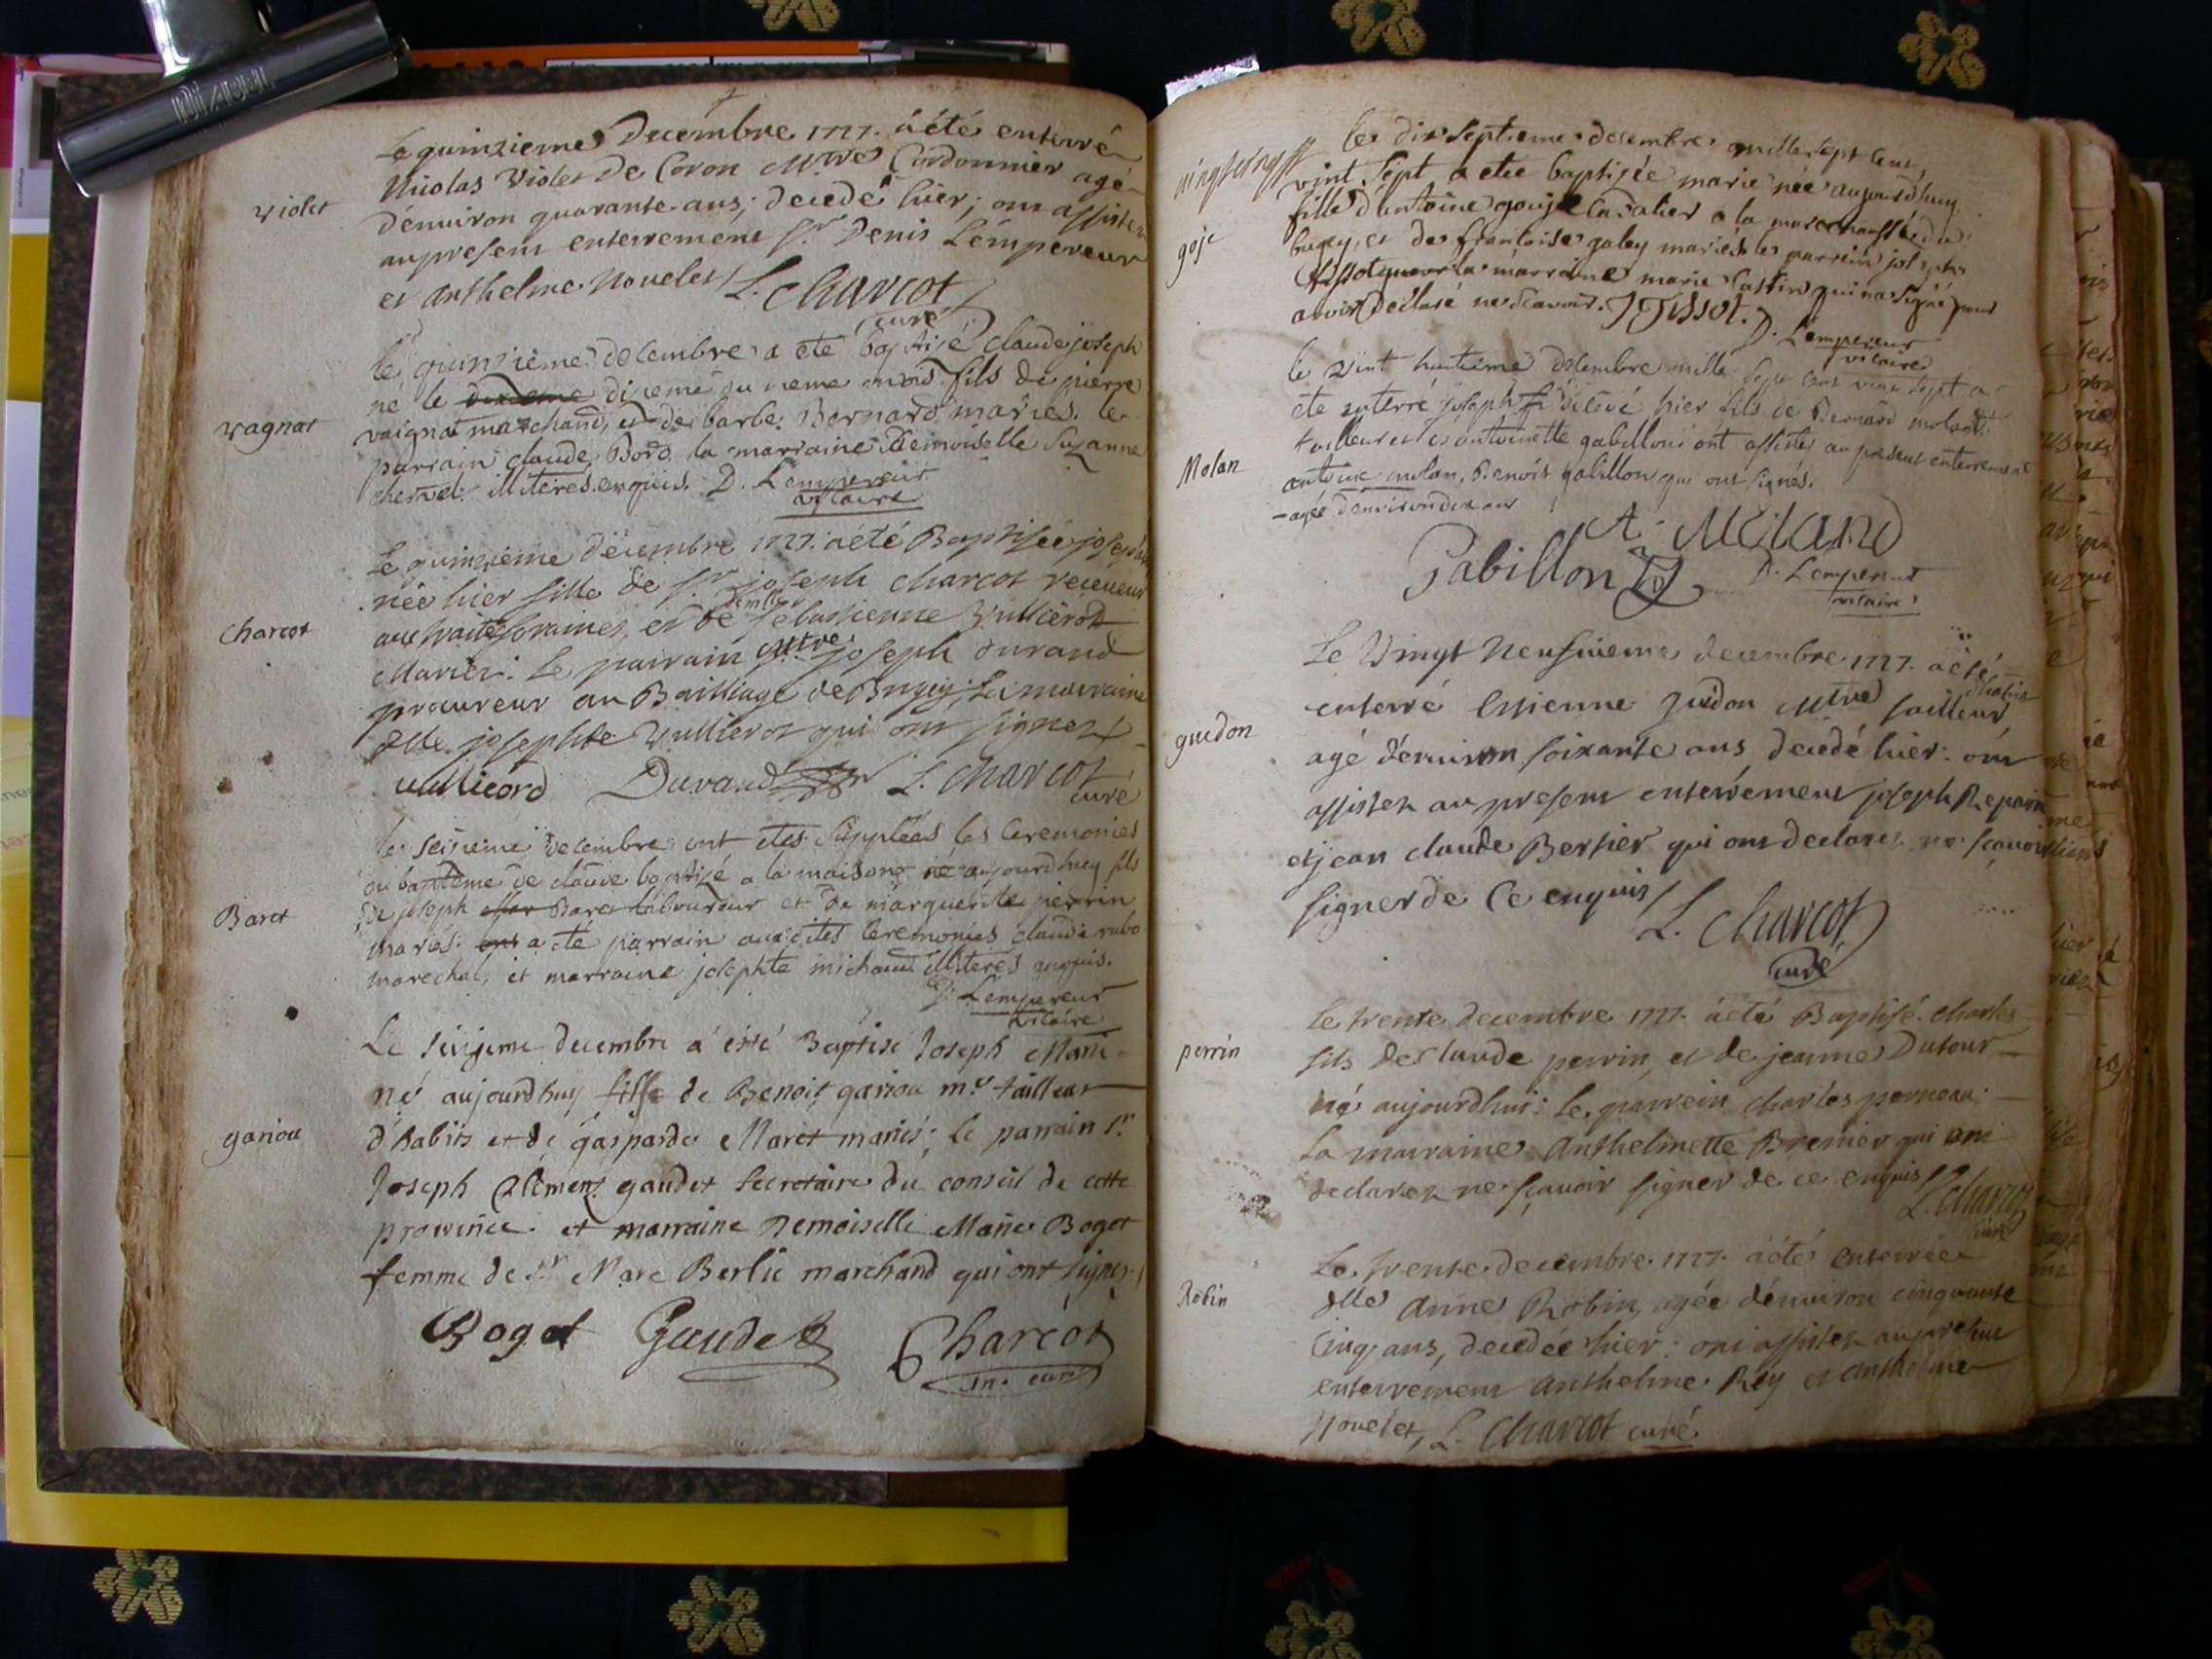 Le quinzieme Decembre 1727. a été enterré
violet
Nicolas Violet De Coron Mtre Cordonnier agé
d'environ quarante ans; decedé hier; ont assistez
au present enterrement Sr. Denis Lempereur
et Anthelme Nouelet L. Charcot
curé
le quinzième decembre a eté baptisé claude joseph
né le dixieme du meme mois fils de pierre
vagnat
vaignat marchand, et de barbe Bernard mariés. le
parrain claude Bord la marraine Demoiselle Suzanne
chervet illiterés enquis. D. Lempereur
vicaire
Le quinzieme decembre 1727. a été Baptisée
née hier fille de Sr. joseph charcot receveur
Charcot
aux traites foraines, et de demlle Sebastienne Vullierod
Mariéz. Le parrain Mtre joseph durand
procureur au Bailliage de Bugey; La marraine
Dlle. josephte Vullierot qui ont signez
Vullieord Durand L. Charcot
curé
le seizieme decembre ont etes suppléés les ceremonies
du baptême de claude baptisé a la maison né aujourdhuy fils
Baret
de joseph Baret laboureur et de marguerite perrin
mariés. a eté parrain auxdites ceremonies claude rubo
marechal, et marraine josephte michaud illiterés enquis.
D. Lempereur
vicaire
Le seizieme decembre a esté Baptisé Joseph Marie
né aujourdhuy fils de Benoit gariou mr. tailleur
gariou
d'habits et de gasparde Maret mariés; Le parrain sr.
Joseph Clement gaudet secretaire du conseil de cette
province. et marraine Demoiselle Marie Boget
femme de Sr Marc Berlie marchand qui ont signez.
Boget Gaudet Charcot
curé
le dix septieme decembre mille sept cent
vint sept a eté baptisée marie née aujourdhuy
goje
fille d'antoine gouje cavalier a la marechaussée de
bugey, et de francoise galey mariés le parrein joseph
Tissot la marraine marie Castin qui na signé pour
avoir déclaré ne scavoir. J Tissot. D. Lempereur
vicaire
le vint huitieme decembre mille sept cent vint sept a
eté enterré joseph décédé hier fils de Bernard molan
tailleur et antoinette gabillon: ont assistés au present enterrement
Molan
antoine molan, Benoit gabillon qui ont signés.
- agé d'environ dix ans
A. Moland
Gabillon D. Lempereur
vicaire
Le Vingt Neufvieme decembre 1727. a été
enterré Estienne guidon Mtre tailleur d'habits
guidon
agé d'environ soixante ans decedé hier: ont
assistez au present enterrement joseph Repain
et jean claude Bertier qui ont declarez ne sçavoir
signer de ce enquis L. Charcot
curé
le trente decembre 1727. a été Baptisé charles
perrin
fils de claude perrin, et de jeanne Dufour
né aujourdhui: le parrein charles perneau.
La marraine Anthelmette Brenier qui ont
declarez ne sçavoir signer de ce enquis
L. Charcot
curé
Le trente decembre 1727. a été enterrée
Robin
Dlle Anne Robin, agée d'environ cinquante
cinq ans, decedée hier: ont assistez au present
enterrement Anthelme Rey et Anthelme
Nouelet, L. Charcot curé